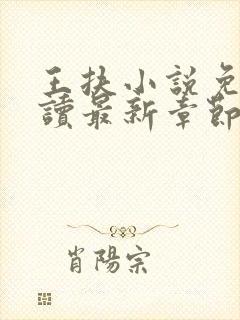 王扶小說免
讀最新章節
肖陽宗